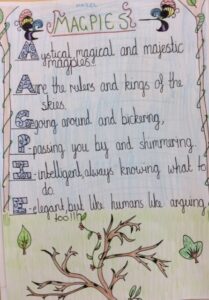 MAGPIES
Mystical magical and majestic
magpies.
A are the rulers and kings of the
skies.
G-going around and bickering,
P-passing you by and shimmering.
I-intelligent, always knowing what to
do.
E-elegant, but like humans like arguing
too!!!